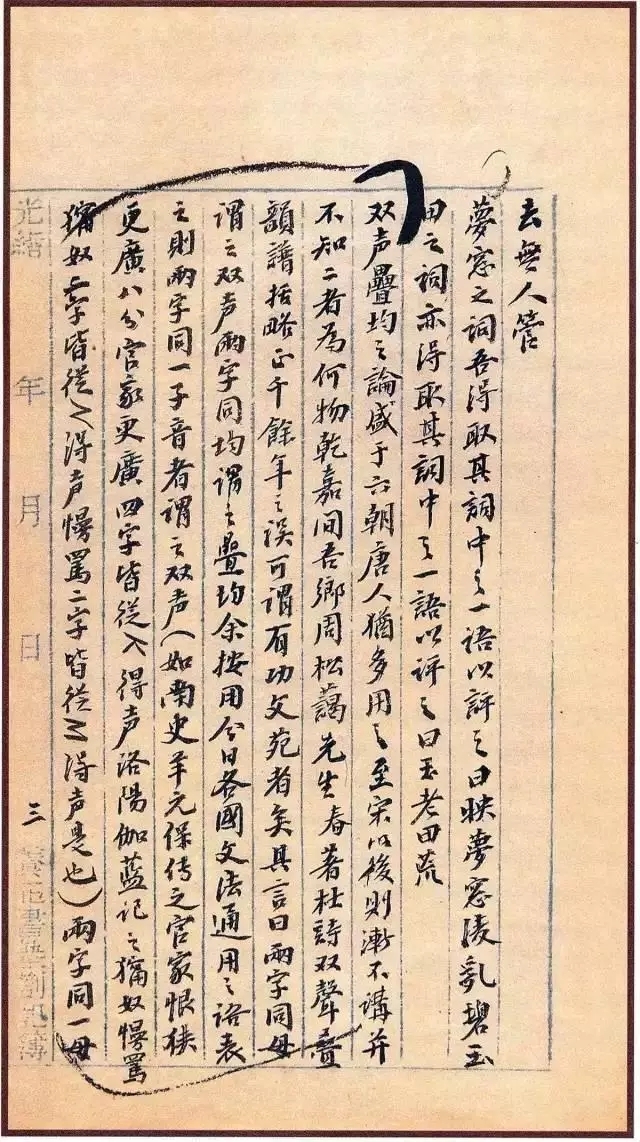 去無人管
夢窓之詞吾得取其詞中之一語以評之曰映夢窓淩亂碧玉
田之詞亦得取其詞中之一語以評之曰玉老田荒
双声疊均之論盛于六朝唐人猶多用之至宋以後則漸不講并
不知二者為何物乾嘉间吾鄉周松藹先生春著杜詩双聲疊
韻譜括略正千餘年之误可謂有功文苑者矣其言曰兩字同母
謂之双声兩字同均謂之疊均余按用今日各國文法通用之語表
之則兩字同一子音者謂之双声(如南史羊元保传之官家恨狭
更廣八分官家更廣四字皆從k得声洛陽伽蓝记之獰奴慢罵
獰奴二字皆從n得声慢罵二字皆從m得声是也)兩字同一母
光緒 年 月 日 三 養正書塾劄記簿